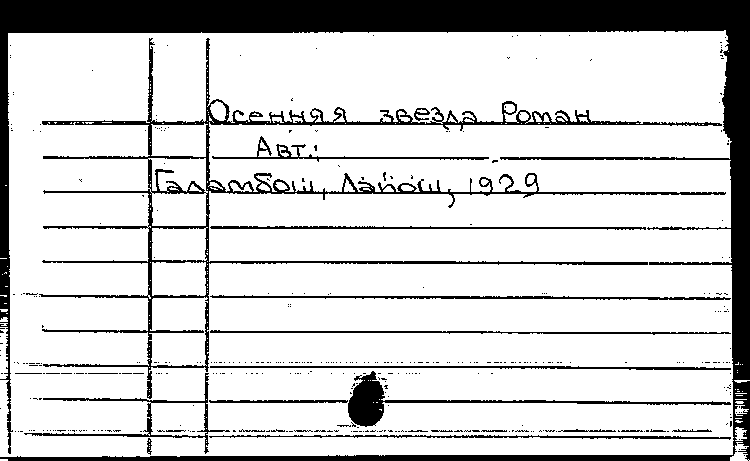 Осенняя звезда Роман
Авт.:
Галамбош, Лайош, 1929